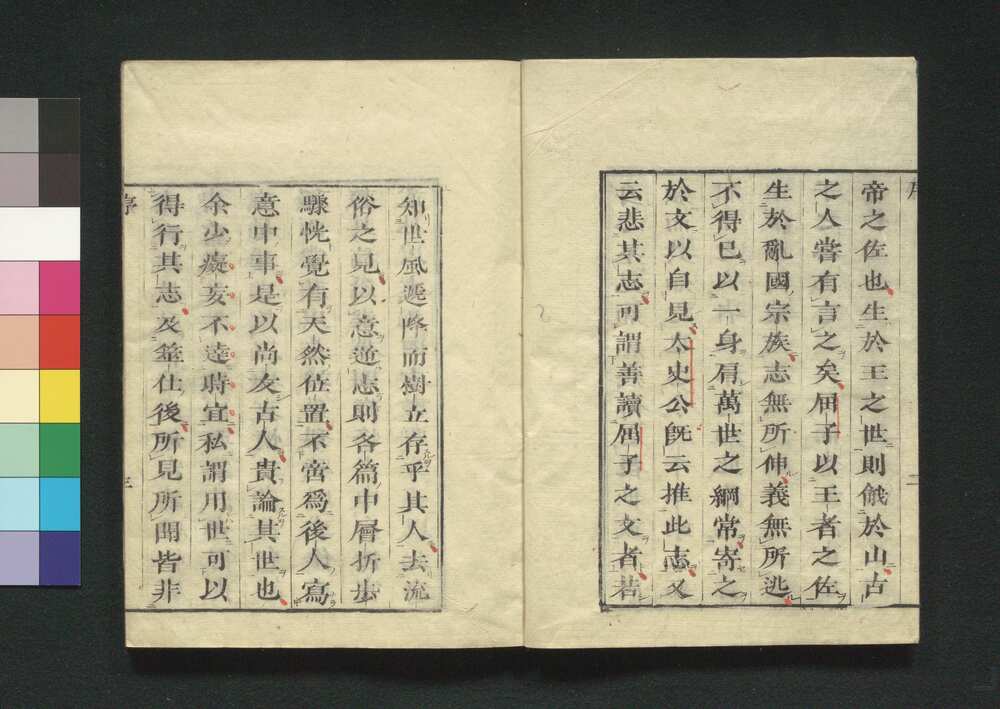 帝之佐也生於王之世則餓於山古
之人嘗有言之矣屈子以王者之佐
生於亂國宗族志無所伸義無所逃
不得已以一身肩萬世之綱常寄之
於文以自見太史公旣云推此志又
云悲其志可謂善讀屈子之文者若
二
知世風遞降而樹立存乎其人去流
俗之見以意逆志則各篇中層折步
驟恍覺有天然位置不啻爲後人寫
意中事是以尚友古人貴論其世也
余少癡妄不逵時宜私謂用世可以
得行其志及筮仕後所見所聞皆非
序
三